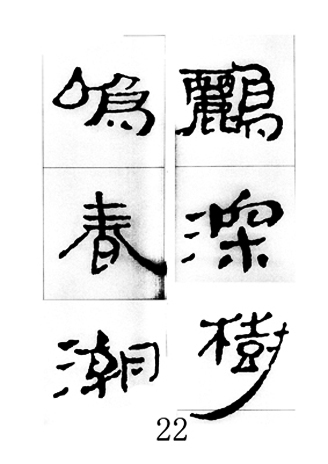 鸝深樹
鳴春潮
22